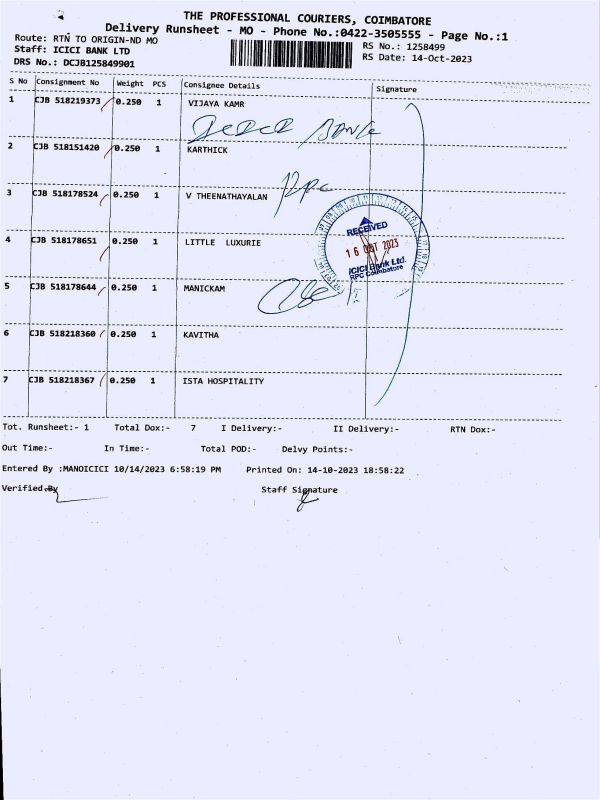 THE PROFESSIONAL COURIERS, COIMBATORE
Delivery Runsheet - MO - Phone No.:0422-3505555 - Page No.:1
Route: RTN TO ORIGIN-ND MO
RS No.: 1258499
Staff: ICICI BANK LTD
RS Date: 14-Oct-2023
DRS No.: DCJB125849901
S No Consignment No Weight PCS Consignee Details Signature
1 CJB 518219373 0.250 1 VIJAYA KAMR
ICICI Bank
2 CJB 518151420 0.250 1 KARTHICK
RPC
3 CJB 518178524 0.250 1 V THEENATHAYALAN
4 CJB 518178651 0.250 1 LITTLE LUXURIE
RECEIVED
16 OCT 2023
ICICI Bank Ltd.
RPC Coimbatore
5 CJB 518178644 0.250 1 MANICKAM
6 CJB 518218360 0.250 1 KAVITHA
7 CJB 518218367 0.250 1 ISTA HOSPITALITY
Tot. Runsheet:- 1 Total Dox:- 7 I Delivery:- II Delivery:- RTN Dox:-
Out Time:- In Time:- Total POD:- Delvy Points:-
Entered By :MANOICICI 10/14/2023 6:58:19 PM Printed On: 14-10-2023 18:58:22
Verified By Staff Signature